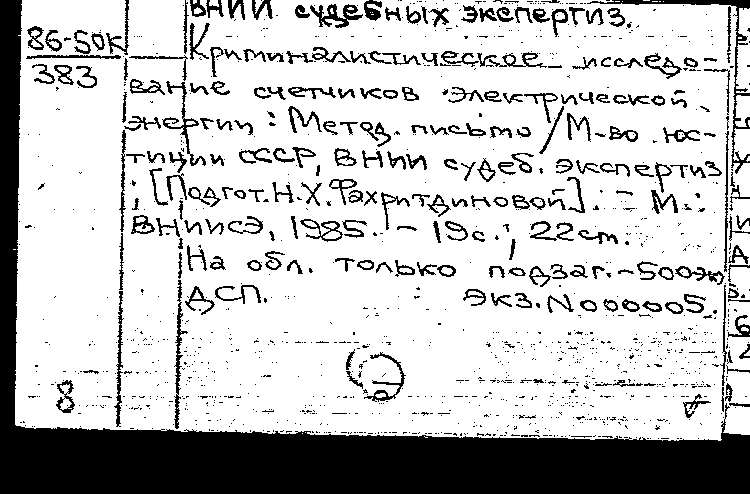 ВНИИ судебных экспертиз.
86-50К
383
Криминалистическое исследо-
вание счетчиков электрической
энергии : Метод. письмо / М-во юс-
тиции СССР, ВНИИ судеб. экспертиз
; [Подгот. Н.Х. Фахритдиновой]. - М.:
ВНИИСЭ, 1985. - 19с.; 22см.
На обл. только подзаг. - 500эк
ДСП. экз. N 000005.
8